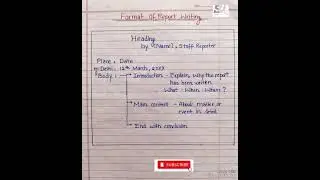 Format Of Report Writing
Heading
by (Name), Staff Reporter
Place, Date
Delhi, 12th March, 20XX
Body: → Introduction - Explain, why the report
has been written.
What - When - Where?
→ Main content - About matter or
event in brief.
→ End with conclusion.
SUBSCRIBE